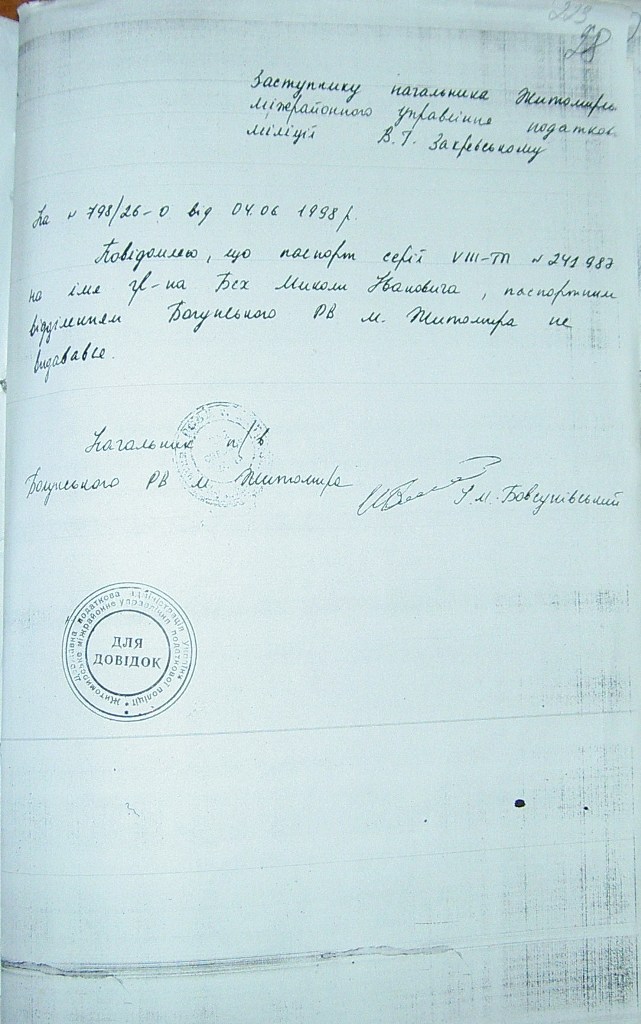 223
28
Заступнику начальника Житомир
міжрайонного управління податков
міліції В. Г. Закревському
На № 798/26-0 від 04.06 1998 р.
Повідомляю, що паспорт серії VIII-ТП № 241987
на імя гр-на Бех Миколи Івановича, паспортним
відділенням Богунського РВ м. Житомира не
видавався.
Начальник п/в
Богунського РВ м. Житомира
М. Бовсунівський
Державна податкова адміністрація України
Житомирське міжрайонне управління податкової поліції
ДЛЯ
ДОВІДОК